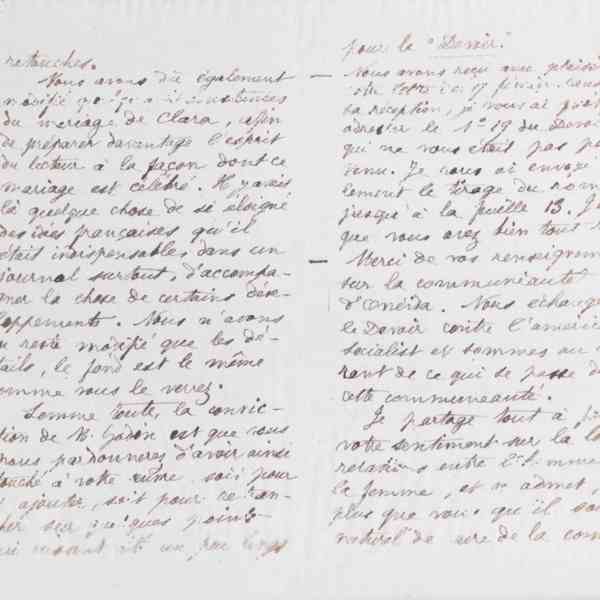 retouches.
Nous avons dû également
modifié quelques circonstances
du mariage de Clara, afin
de préparer davantage l'esprit
du lecteur à la façon dont ce
mariage est célébré. Il y avait
là quelque chose de si éloigné
des idées françaises qu'il
était indispensable, dans un
journal surtout, d'accompa-
gner la chose de certains déve-
loppements. Nous n'avons
du reste modifié que les dé-
tails, le fond est le même
comme vous le verrez.
Somme toute, la convic-
tion de M. Godin est que vous
nous pardonnerez d'avoir ainsi
touché à votre œuvre soit pour
y ajouter, soit pour retran-
cher sur quelques points
qui un peu longs
pour le "Devoir".
— Nous avons reçu avec plaisir
17 février.
sa réception, je vous ai
adresser le No 19 du Devoir
qui ne vous était pas
venu. Je vous ai envoyé
lement le tirage du rom
jusqu'à la feuille 13. J
que vous avez bien tout
— Merci de vos renseignem
sur la communauté
d'Oneida. Nous échange
le Devoir contre l'americ
socialist et sommes au
rant de ce qui se passe d
cette communauté.
Je partage tout à
votre sentiment sur la
relations entre l'homme
la femme, et n'admet,
plus que vous qu'il soi
naturel de de la com